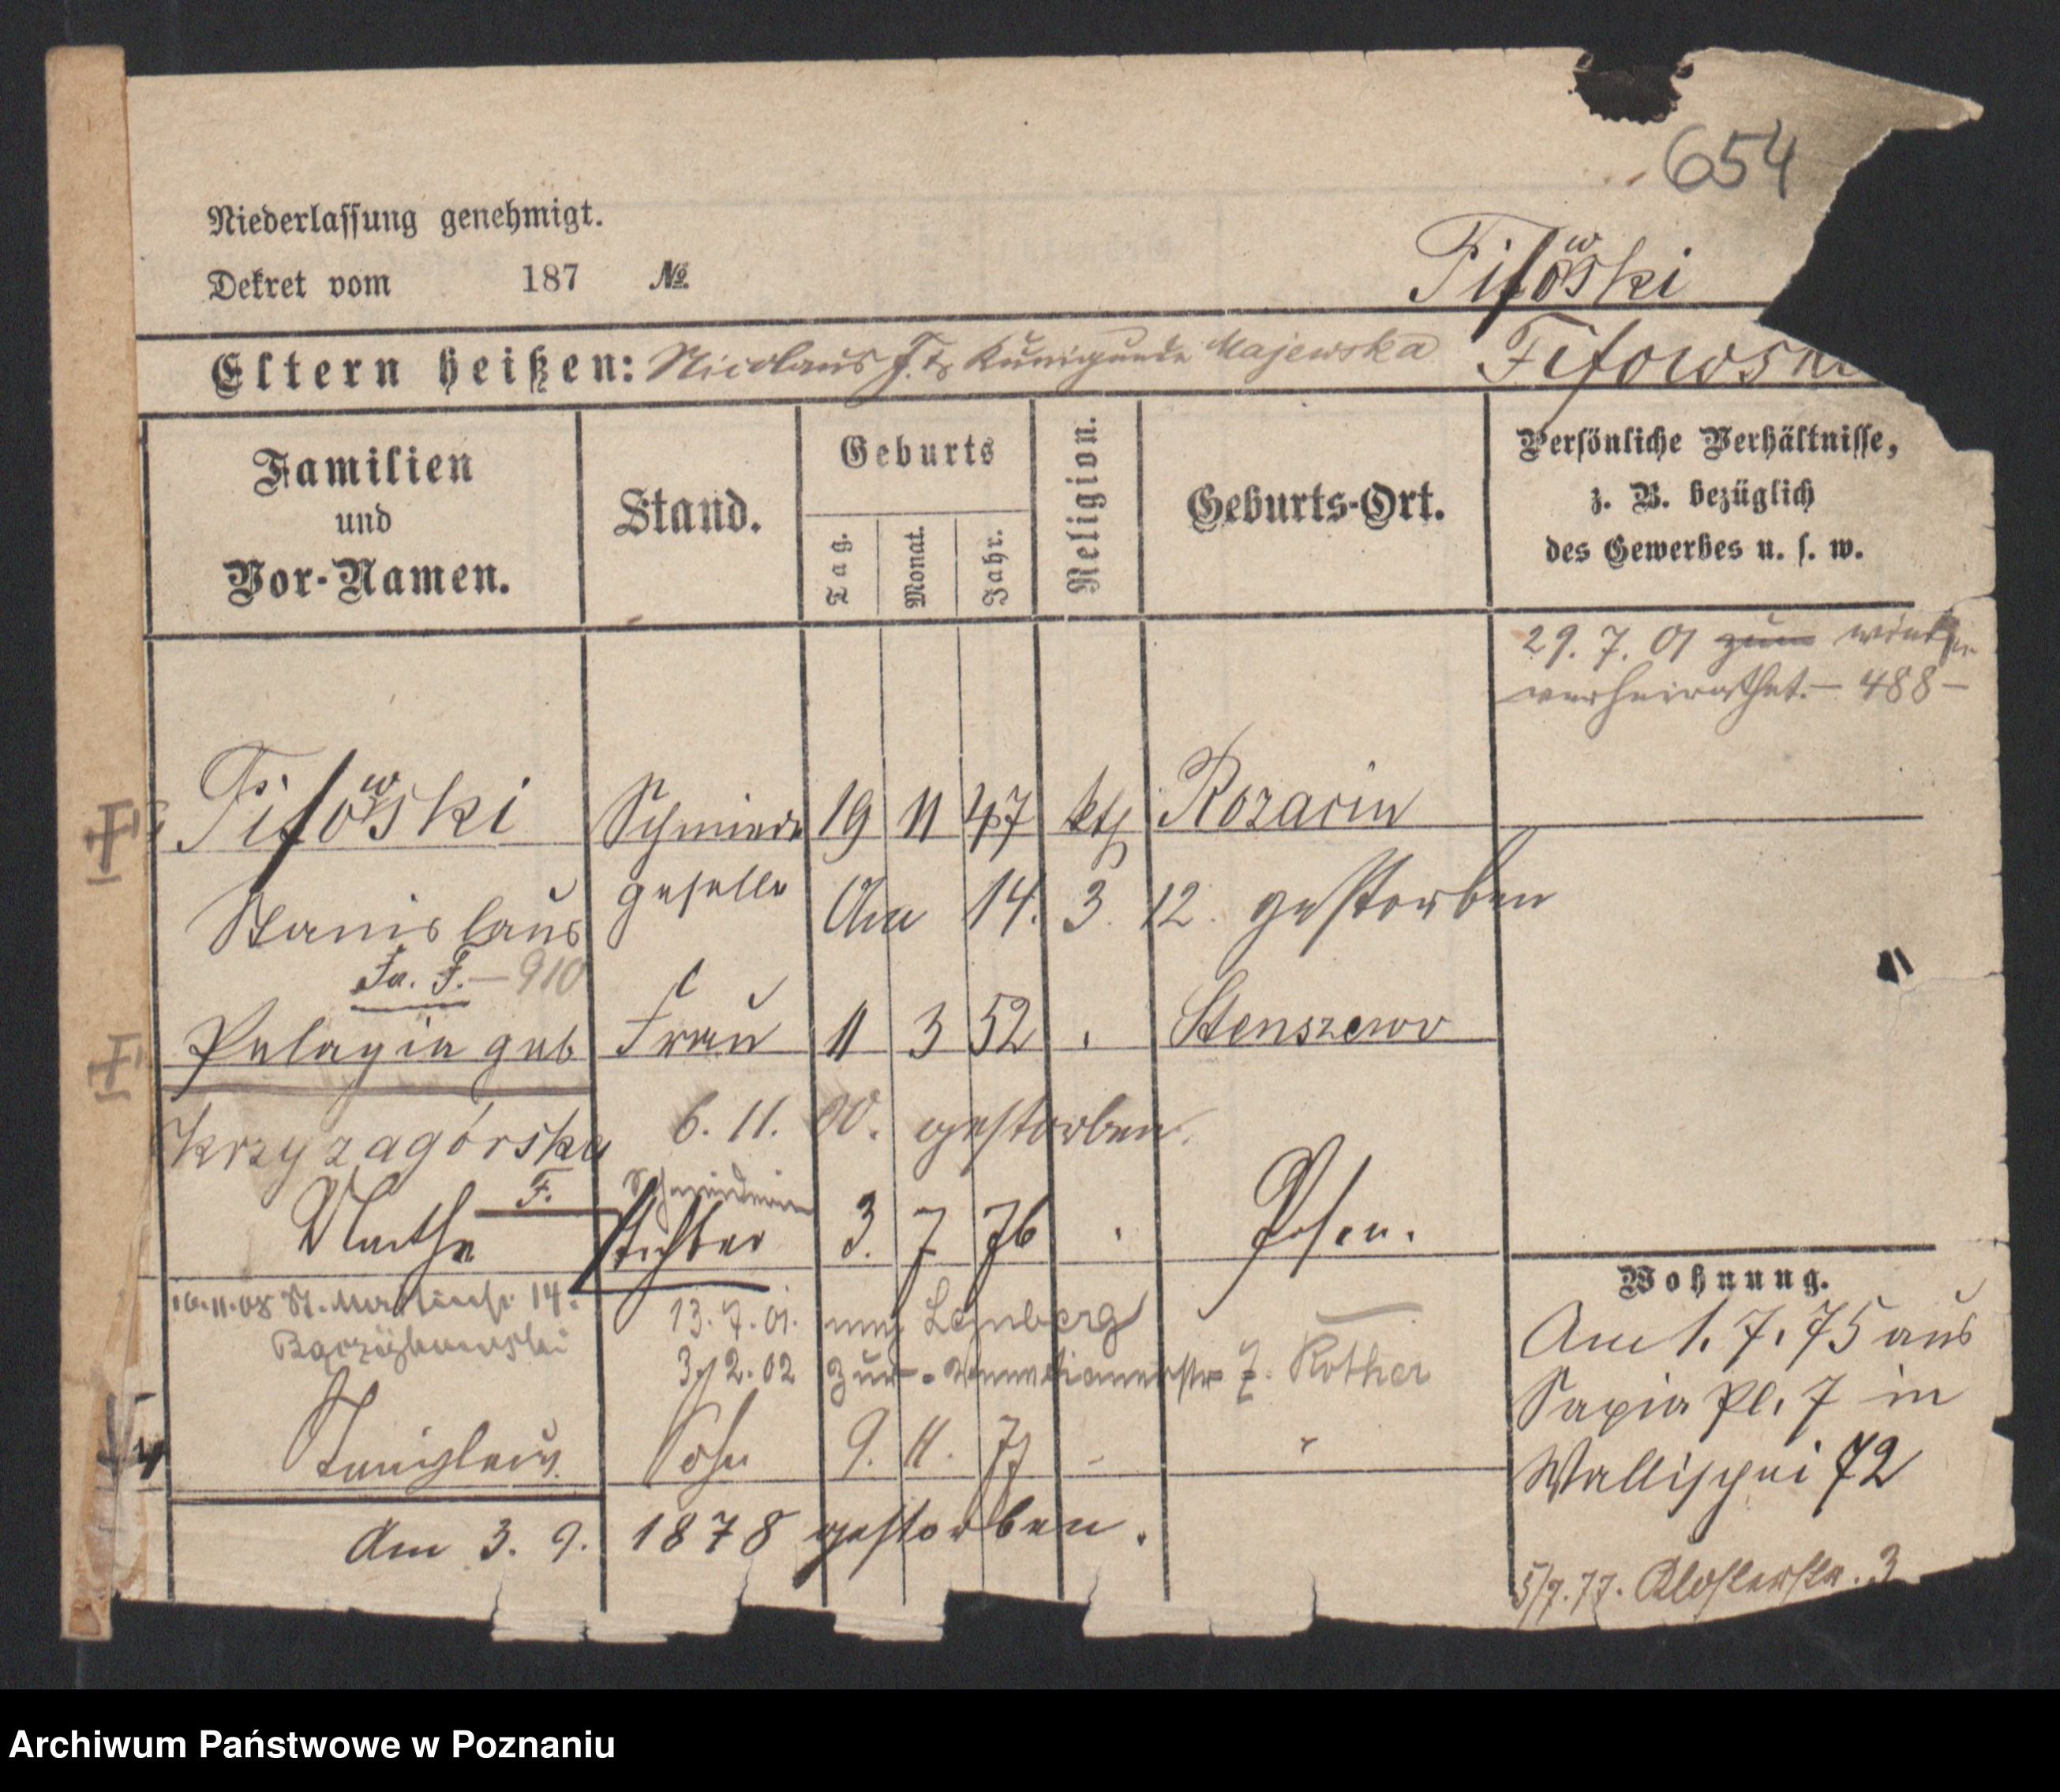 654
Niederlassung genehmigt.
Dekret vom 187 №
Fifowski
Eltern heißen: Nicolaus F. & Kunigunde Majewska Fifowski
Familien und Vor-Namen.
Stand.
Geburts
Tag.
Monat.
Jahr.
Religion.
Geburts-Ort.
Persönliche Verhältnisse,
z. B. bezüglich
des Gewerbes u. s. w.
29. 7. 01 zum wieder
verheirathet. – 488 –
Fifowski Schmiede 19 11 47 kth Rozarin
Stanislaus geselle Am 14. 3. 12. gestorben
Fa. F. – 910
Pelagia geb Frau 11 3 52 Stenszewo
Krzyzagórska 6. 11. 00. gestorben.
F. Schneiderin
Marthe Tochter 3. 7 76 Posen.
16.11.08 St. Martinstr. 14. 13. 7. 01. nach Lemberg
3/2. 02 Zur. Venetianerstr 7. Rother
Stanislaus Sohn 9. 11. 77 "
Am 3. 9. 1878 gestorben.
Wohnung.
Am 1. 7. 75 aus
Sapia Pl. 7 in
Wallischei 72
5/7. 77. Klosterstr. 3
Archiwum Państwowe w Poznaniu